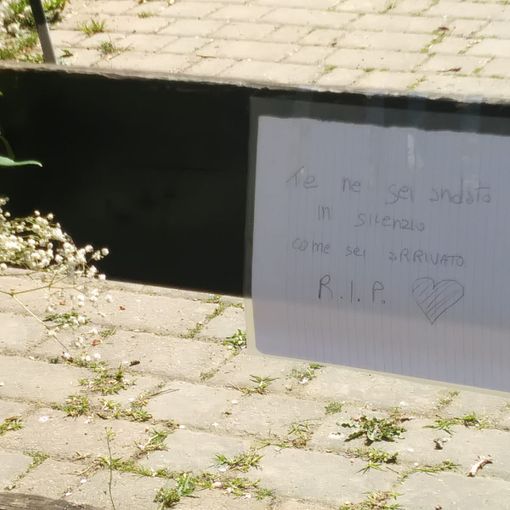 Te ne sei andato
in silenzio
come sei aRRIVATO
R.I.P.